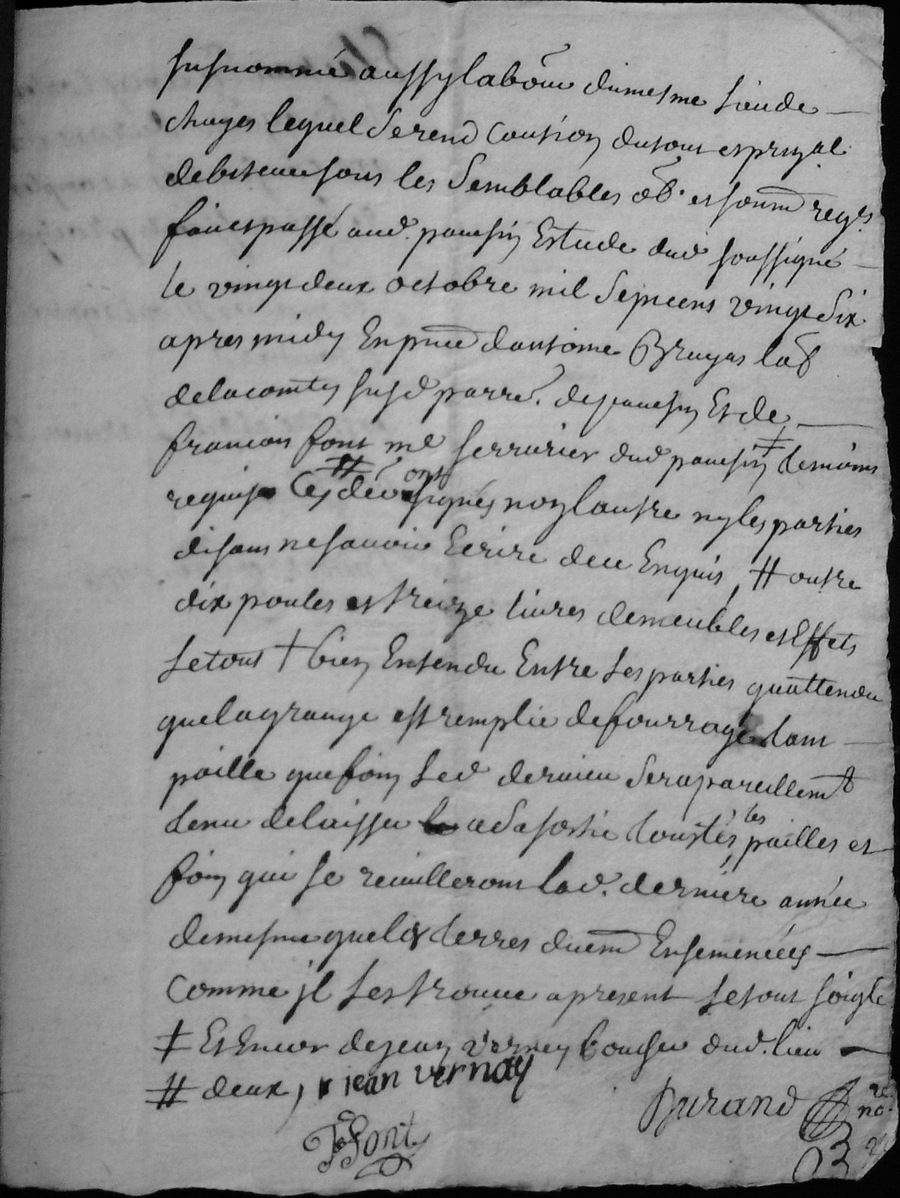 susnommé aussy labor̃ du mesme lieu de
chayes lequel se rend caution du tout et pnẑal
debiteur sous les semblables ob. et soum̃ reg̃s.
fait et passé aud. pousin Estude dud soussigné
le vingt deux octobre mil sept cens vingt six
apres midy En pñce dantoine Bruyas lab̃
de la comte susd parre. de pousin Et de
francois font me serrurier dud pousin ‡ temoins
requis # les deux ont signés non lautre ny les parties
disant ne savoir Ecrire de ce Enquis, # outre
dix poules et treize livres de meubles et Effets
le tout † bien Entendu Entre les parties quattendu
que la grange est remplie de fourrage tant
paille que foin led dernier sera pareillemt
tenu de laisser a sa sortie toutes les pailles et
foin qui se reuilleront lad. derniere année
de mesme que les terres duem̃ Ensemencées
comme jl les trouve a present le tout soigle
‡ Et Encor de jean verney boucher dud. lieu
# deux, jean vernay
Durand no.re
F Font